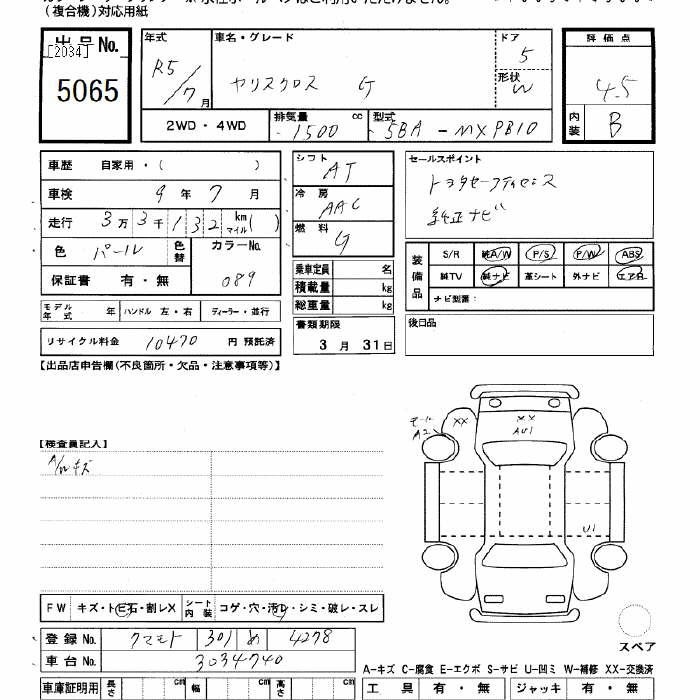 (複合機)対応用紙
出品No.
[2034]
5065
年式 R5/7月
車名・グレード ヤリスクロス G
ドア 5
形状 W
評価点 4.5
内装 B
2WD・4WD
排気量 1500 cc
型式 5BA-MXPB10
車歴 自家用・( )
車検 9年 7月
走行 3万3千132 km マイル( )
色 パール 色替
カラーNo. 089
保証書 有・無
シフト AT
冷房 AAC
燃料 G
乗車定員 名
積載量 kg
総重量 kg
セールスポイント
トヨタセーフティセンス
純正ナビ
装備品 S/R 純A/W P/S P/W ABS
純TV 純ナビ 革シート 外ナビ エアB
ナビ型番:
モデル年式 年 ハンドル 左・右 ディーラー・並行
リサイクル料金 10470 円 預託済
書類期限
3月31日
後日品
【出品店申告欄(不良箇所・欠品・注意事項等)】
【検査員記入】
A/Wキズ
モール
A2
XX
XX
AU1
U1
FW キズ・トビ石・割レX シート内装 コゲ・穴・汚レ・シミ・破レ・スレ
登録No. クマモト 301 め 4278
車台No. 3034740
スペア
A-キズ C-腐食 E-エクボ S-サビ U-凹ミ W-補修 XX-交換済
車庫証明用 長さ cm 幅 cm 高さ cm
工具 有・無 ジャッキ 有・無